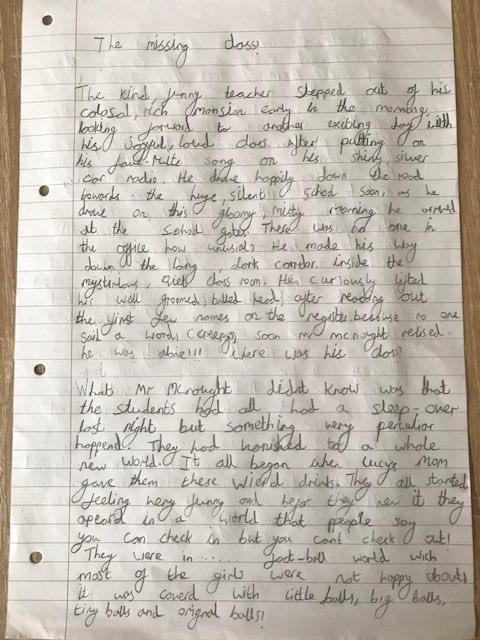 The missing class!
The kind, funny teacher stepped out of his
colosal, rich mansion early in the morning,
looking forward to another exciting day with
his joyful, loud class. After putting on
his favourite song on his shiny, silver
car radio. He drove happily down the road
towards the huge, silent school soon, as he
drove on this gloomy, misty morning he arrived
at the school gates. There was no one in
the office how unusual. He made his way
down the long, dark corridor inside the
mysterious, quiet class room. He curiously lifted
his well groomed, balled head, after reading out
the first few names on the register because no one
said a word (creepy), soon mr mcnought relised
he was alone!!! where was his class?
Whats Mr Mcnought didnt know was that
the students had all had a sleep-over
last night but something very perculior
happend. They had vanished to a whole
new world. It all began when Lucys mom
gave them these wierd drinks. They all started
feeling very funny and befor they new it they
apeard in a world that people say
you can check in but you cant check out!
They were in ...... foot-ball world wich
most of the girls were not happy about,
it was coverd with little balls, big balls,
tiny balls and orignal balls!